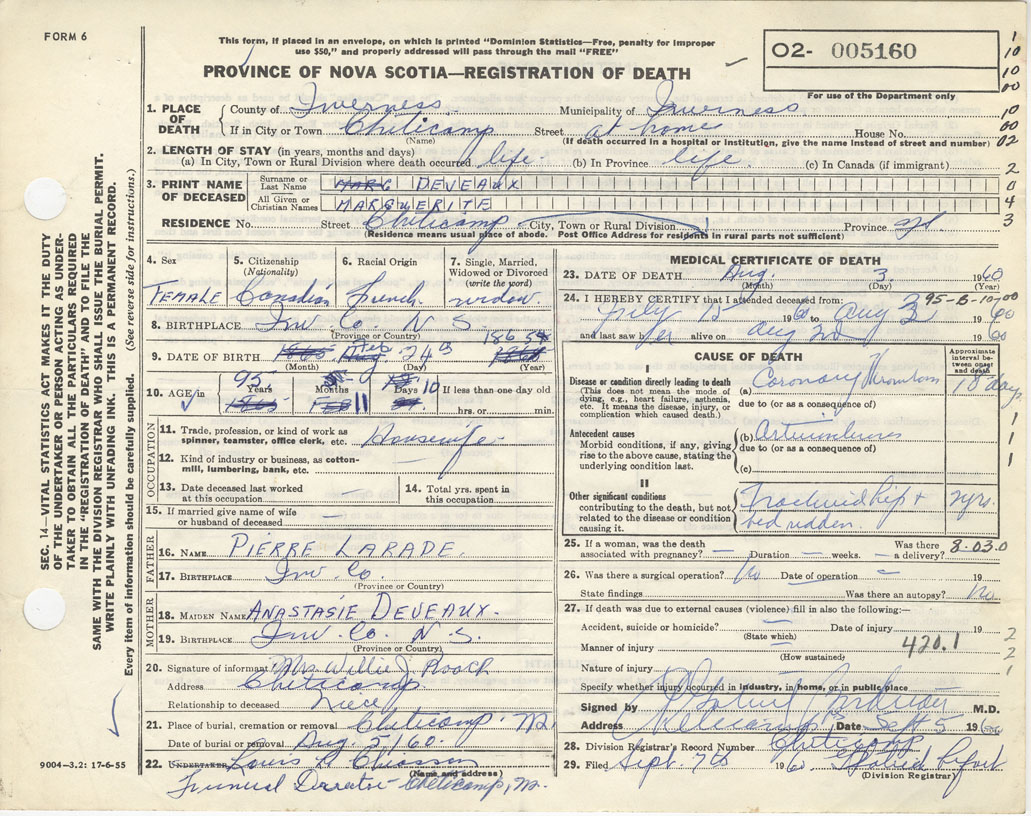 FORM 6
This form, if placed in an envelope, on which is printed "Dominion Statistics—Free, penalty for improper
use $50," and properly addressed will pass through the mail "FREE"
PROVINCE OF NOVA SCOTIA—REGISTRATION OF DEATH
02- 005160
For use of the Department only
1. PLACE OF DEATH
County of Inverness Municipality of Inverness
If in City or Town Cheticamp Street at home House No.
(Name) (If death occurred in a hospital or institution, give the name instead of street and number)
2. LENGTH OF STAY (in years, months and days)
(a) In City, Town or Rural Division where death occurred life (b) In Province life (c) In Canada (if immigrant)
3. PRINT NAME OF DECEASED
Surname or Last Name DEVEAUX
All Given or Christian Names MARGUERITE
RESIDENCE No. Street Cheticamp City, Town or Rural Division Province NS
(Residence means usual place of abode. Post Office Address for residents in rural parts not sufficient)
4. Sex 5. Citizenship (Nationality) 6. Racial Origin 7. Single, Married, Widowed or Divorced (write the word)
FEMALE Canadian French widow
8. BIRTHPLACE Inv Co. N S.
(Province or Country)
9. DATE OF BIRTH Sep 24th
(Month) (Day) (Year)
10. AGE/in Years Months 11 Days 10 If less than one day old
hrs. or min.
OCCUPATION
11. Trade, profession, or kind of work as spinner, teamster, office clerk, etc. Housewife
12. Kind of industry or business, as cotton-mill, lumbering, bank, etc. —
13. Date deceased last worked at this occupation — 14. Total yrs. spent in this occupation
15. If married give name of wife or husband of deceased —
FATHER
16. NAME PIERRE LABADE.
17. BIRTHPLACE Inv Co.
(Province or Country)
MOTHER
18. MAIDEN NAME ANASTASIE DEVEAUX.
19. BIRTHPLACE Inv. Co. N. S.
(Province or Country)
20. Signature of informant Mrs Willie J Roach
Address Cheticamp
Relationship to deceased Niece
21. Place of burial, cremation or removal Cheticamp. NS
Date of burial or removal Aug. 5/60.
22. UNDERTAKER Louis A Chiasson
(Name and address)
Funeral Director Cheticamp, NS.
MEDICAL CERTIFICATE OF DEATH
23. DATE OF DEATH Aug. 3 1960
(Month) (Day) (Year)
24. I HEREBY CERTIFY that I attended deceased from:
July 15 1960 to Aug 3 1960
95-B-10-00
and last saw her alive on Aug 2nd 1960
CAUSE OF DEATH
Approximate interval between onset and death
I
Disease or condition directly leading to death
(This does not mean the mode of dying, e.g., heart failure, asthenia, etc. It means the disease, injury, or complication which caused death.)
(a) Coronary Thrombosis 18 days
due to (or as a consequence of)
Antecedent causes
Morbid conditions, if any, giving rise to the above cause, stating the underlying condition last.
(b)
due to (or as a consequence of)
(c)
II
Other significant conditions contributing to the death, but not related to the disease or condition causing it.
Fractured hip +
bed ridden. 2 yrs.
25. If a woman, was the death associated with pregnancy? — Duration — weeks. Was there a delivery? —
8-03.0
26. Was there a surgical operation? No Date of operation — 19
State findings Was there an autopsy? No
27. If death was due to external causes (violence) fill in also the following:—
Accident, suicide or homicide? — Date of injury 19
(State which)
Manner of injury 420.1
(How sustained)
Nature of injury
Specify whether injury occurred in industry, in home, or in public place
Signed by M.D.
Address Cheticamp Date Sept 5 1960
28. Division Registrar's Record Number Cheticamp
29. Filed Sept. 7th 1960
(Division Registrar)
SEC. 14—VITAL STATISTICS ACT MAKES IT THE DUTY
OF THE UNDERTAKER OR PERSON ACTING AS UNDER-
TAKER TO OBTAIN ALL THE PARTICULARS REQUIRED
IN THE "REGISTRATION OF DEATH" AND TO FILE THE
SAME WITH THE DIVISION REGISTRAR WHO SHALL ISSUE THE BURIAL PERMIT.
WRITE PLAINLY WITH UNFADING INK. THIS IS A PERMANENT RECORD.
Every item of information should be carefully supplied. (See reverse side for instructions.)
9004—3.2: 17-6-55